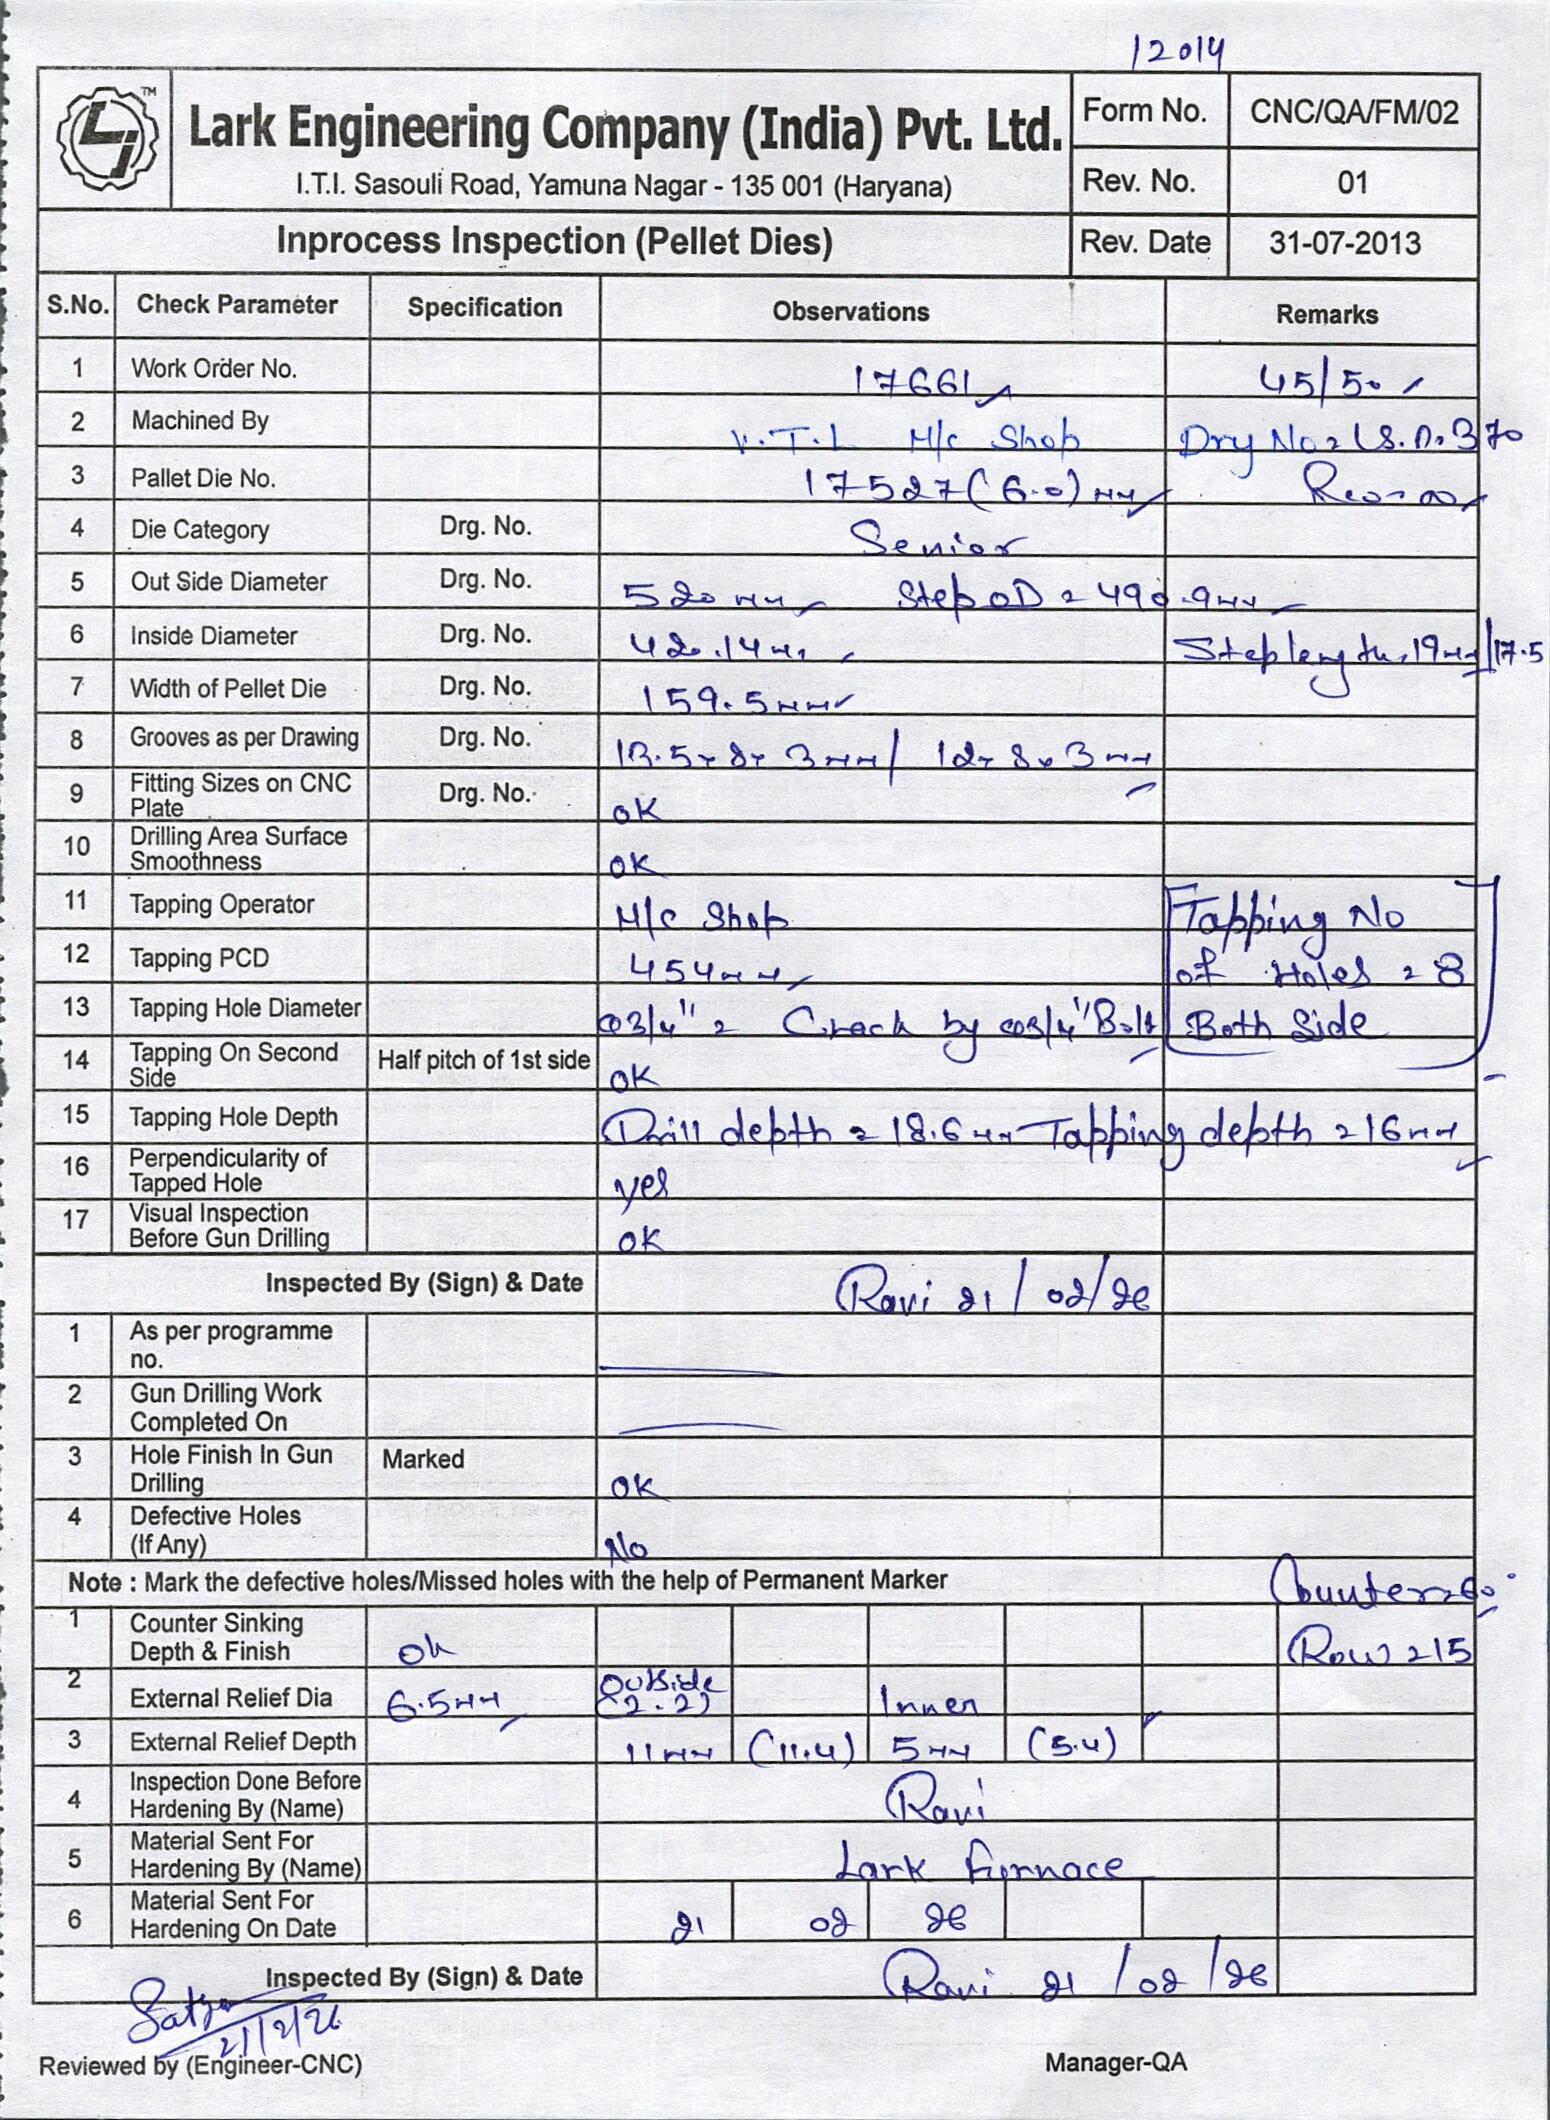 12014
LJ TM
Lark Engineering Company (India) Pvt. Ltd.
I.T.I. Sasouli Road, Yamuna Nagar - 135 001 (Haryana)
Form No. CNC/QA/FM/02
Rev. No. 01
Inprocess Inspection (Pellet Dies) Rev. Date 31-07-2013
S.No. Check Parameter Specification Observations Remarks
1 Work Order No. 17661 45/50
2 Machined By V.T.L M/c Shop
3 Pallet Die No. 17527 (6.0) mm
4 Die Category Drg. No. Senior
5 Out Side Diameter Drg. No. 520 mm Step OD = 490.9mm
6 Inside Diameter Drg. No. 420.14mm Step length = 19mm/17.5
7 Width of Pellet Die Drg. No. 159.5mm
8 Grooves as per Drawing Drg. No. 13.5x8x3mm/ 12x8x3mm
9 Fitting Sizes on CNC Plate Drg. No. OK
10 Drilling Area Surface Smoothness OK
11 Tapping Operator M/c Shop Tapping No
12 Tapping PCD 454mm of Holes = 8
13 Tapping Hole Diameter 3/4" = Check by 3/4" Bolt Both Side
14 Tapping On Second Side Half pitch of 1st side OK
15 Tapping Hole Depth Drill depth = 18.6mm Tapping depth = 16mm
16 Perpendicularity of Tapped Hole yes
17 Visual Inspection Before Gun Drilling OK
Inspected By (Sign) & Date Ravi 21/02/26
1 As per programme no.
2 Gun Drilling Work Completed On
3 Hole Finish In Gun Drilling Marked OK
4 Defective Holes (If Any) No
Note : Mark the defective holes/Missed holes with the help of Permanent Marker Counter=60°
1 Counter Sinking Depth & Finish Ok Row = 15
2 External Relief Dia 6.5mm Outside (2.2) Inner
3 External Relief Depth 11mm (11.4) 5mm (5.4)
4 Inspection Done Before Hardening By (Name) Ravi
5 Material Sent For Hardening By (Name) Lark Furnace
6 Material Sent For Hardening On Date 21 02 26
Inspected By (Sign) & Date Ravi 21/02/26
21/2/26
Reviewed by (Engineer-CNC) Manager-QA